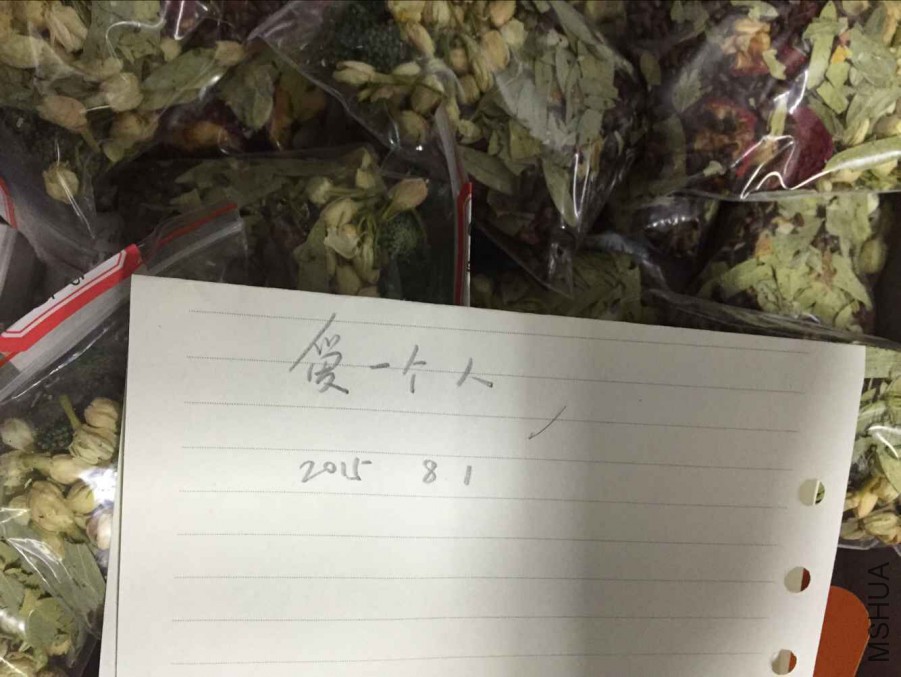 爱一个人
2015 8 1
MSHUA